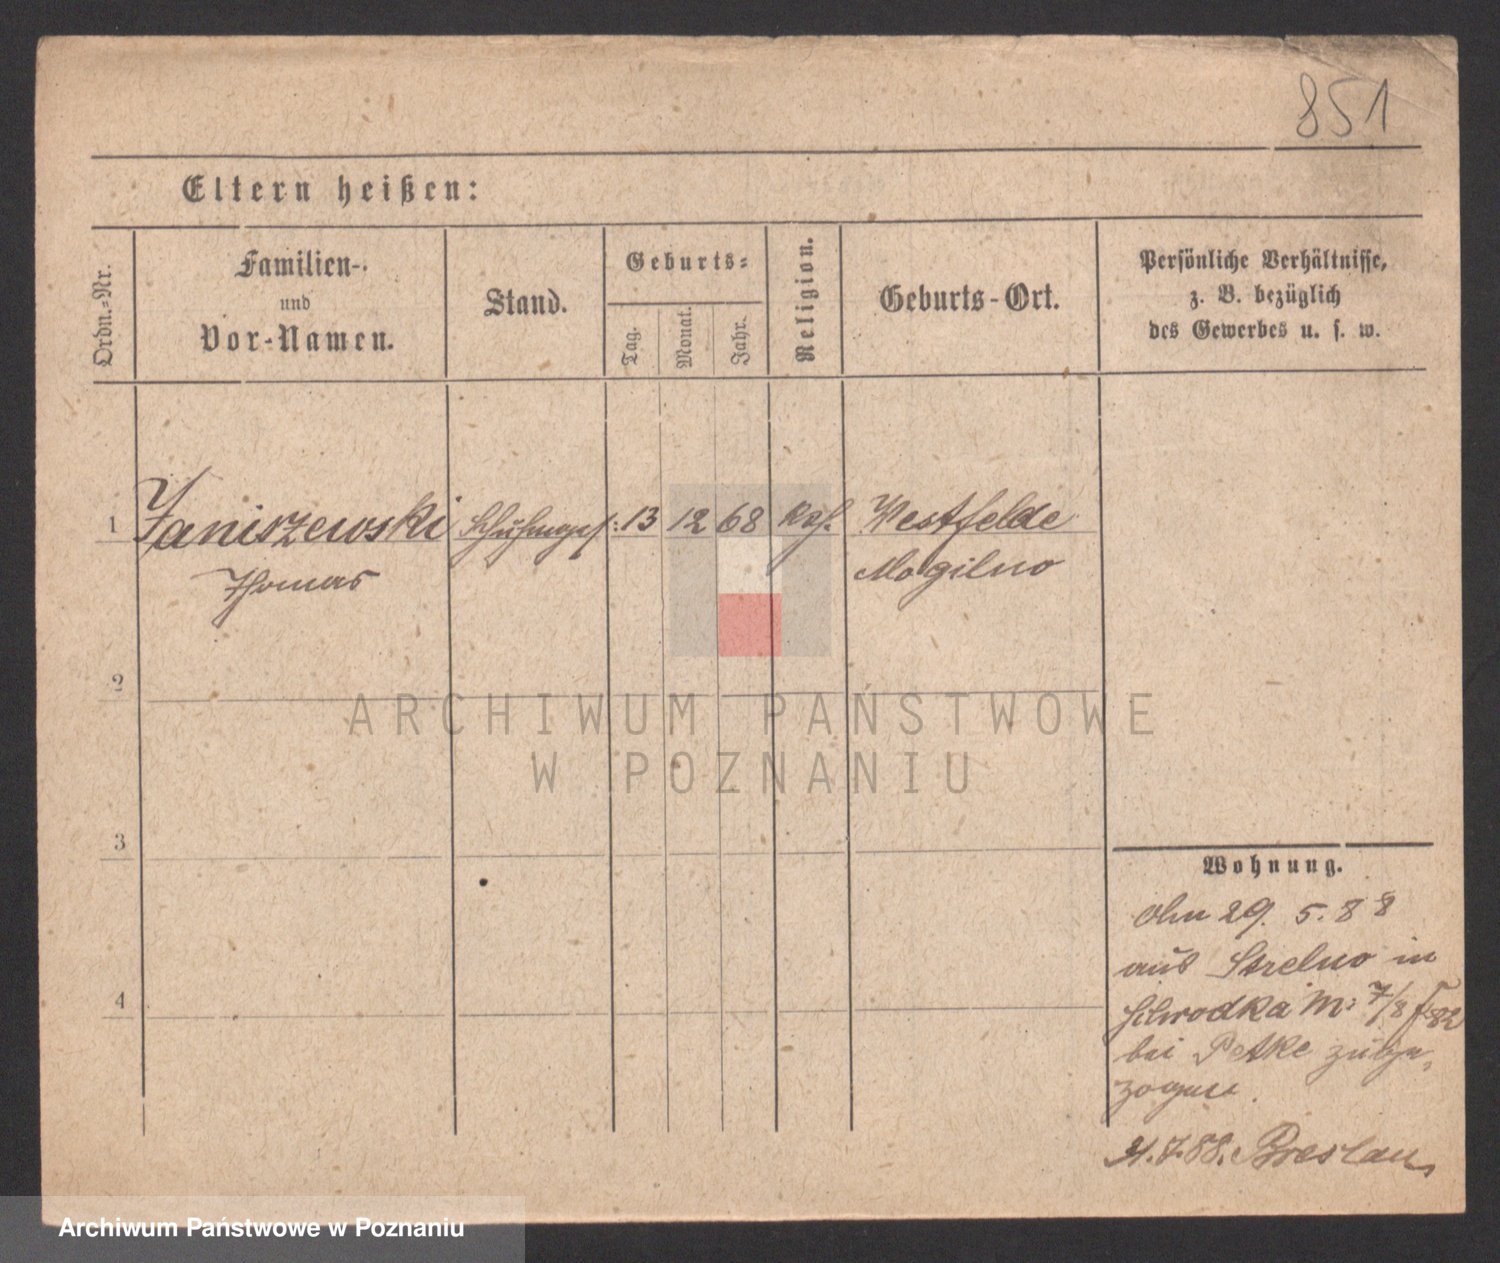 851
Eltern heißen:
Ordn.-Nr.
Familien-
und
Vor-Namen.
Stand.
Geburts-
Tag.
Monat.
Jahr.
Religion.
Geburts-Ort.
Persönliche Verhältnisse,
z. B. bezüglich
des Gewerbes u. s. w.
1 Janiszewski 13 12 68 Westfelde
Thomas Mogilno
2
ARCHIWUM PAŃSTWOWE
W POZNANIU
3
4
Wohnung.
29. 5. 88
aus Strelno in
Schrodka 7/8
bei Petke zuge-
zogen.
21.7.88. Breslau
Archiwum Państwowe w Poznaniu